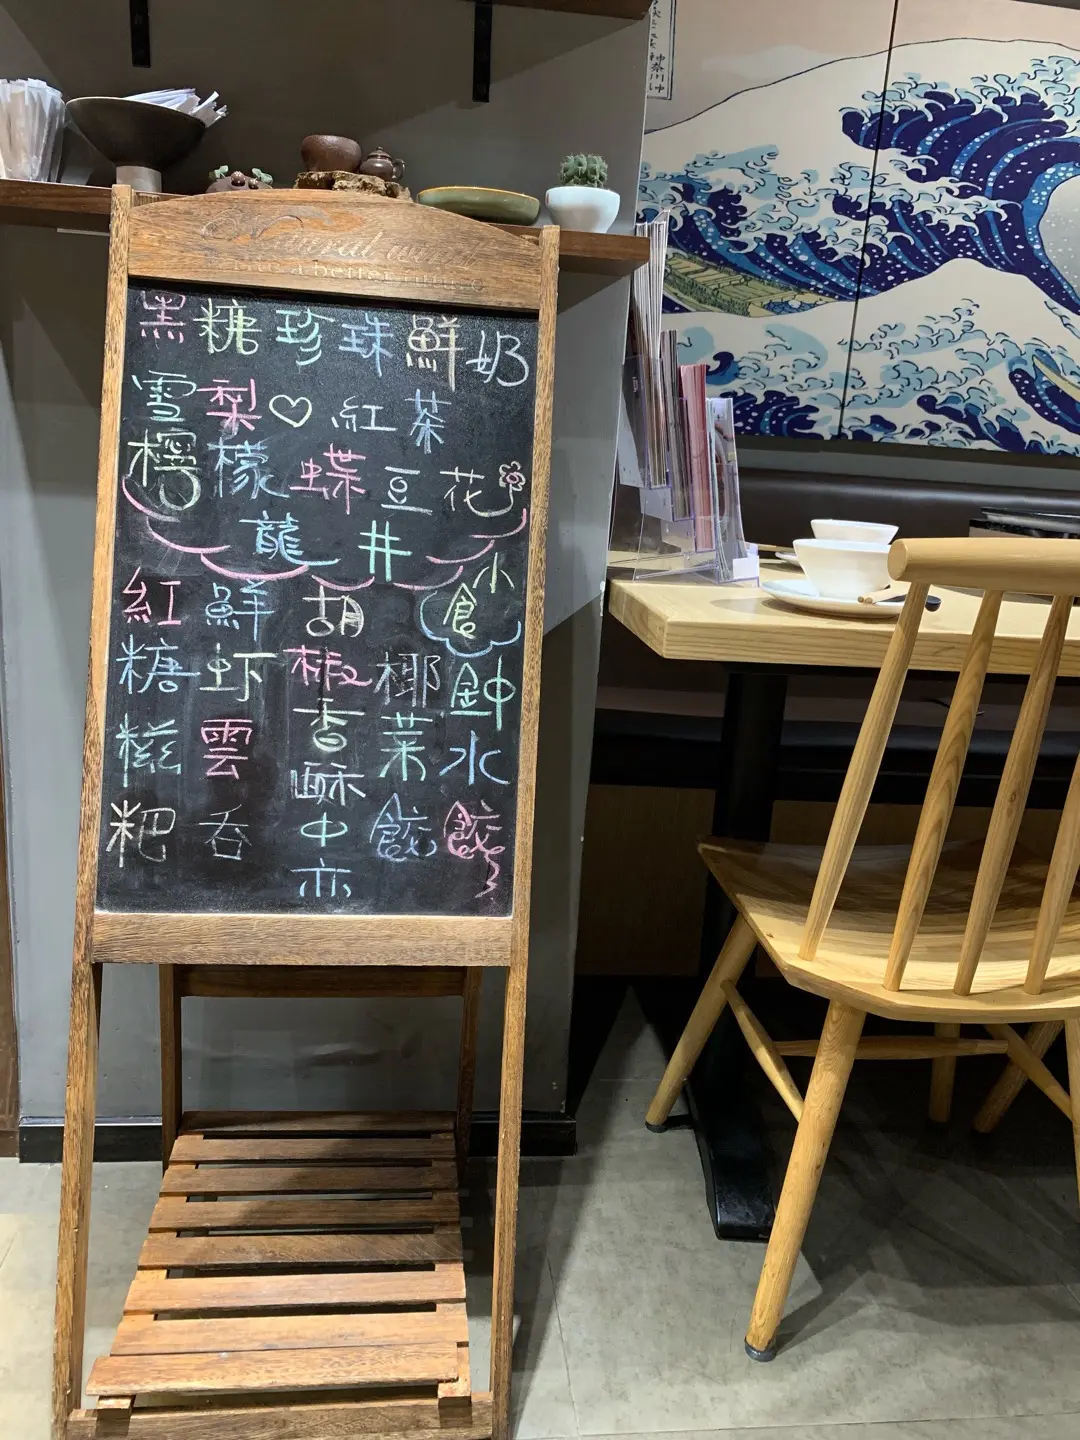 Natural
黑糖珍珠鮮奶
雪梨♡紅茶
檸檬蝶豆花
龍井
紅糖糍粑
鮮虾雲吞
胡椒香酥中亦
椰菜餃
小食
鈡水餃